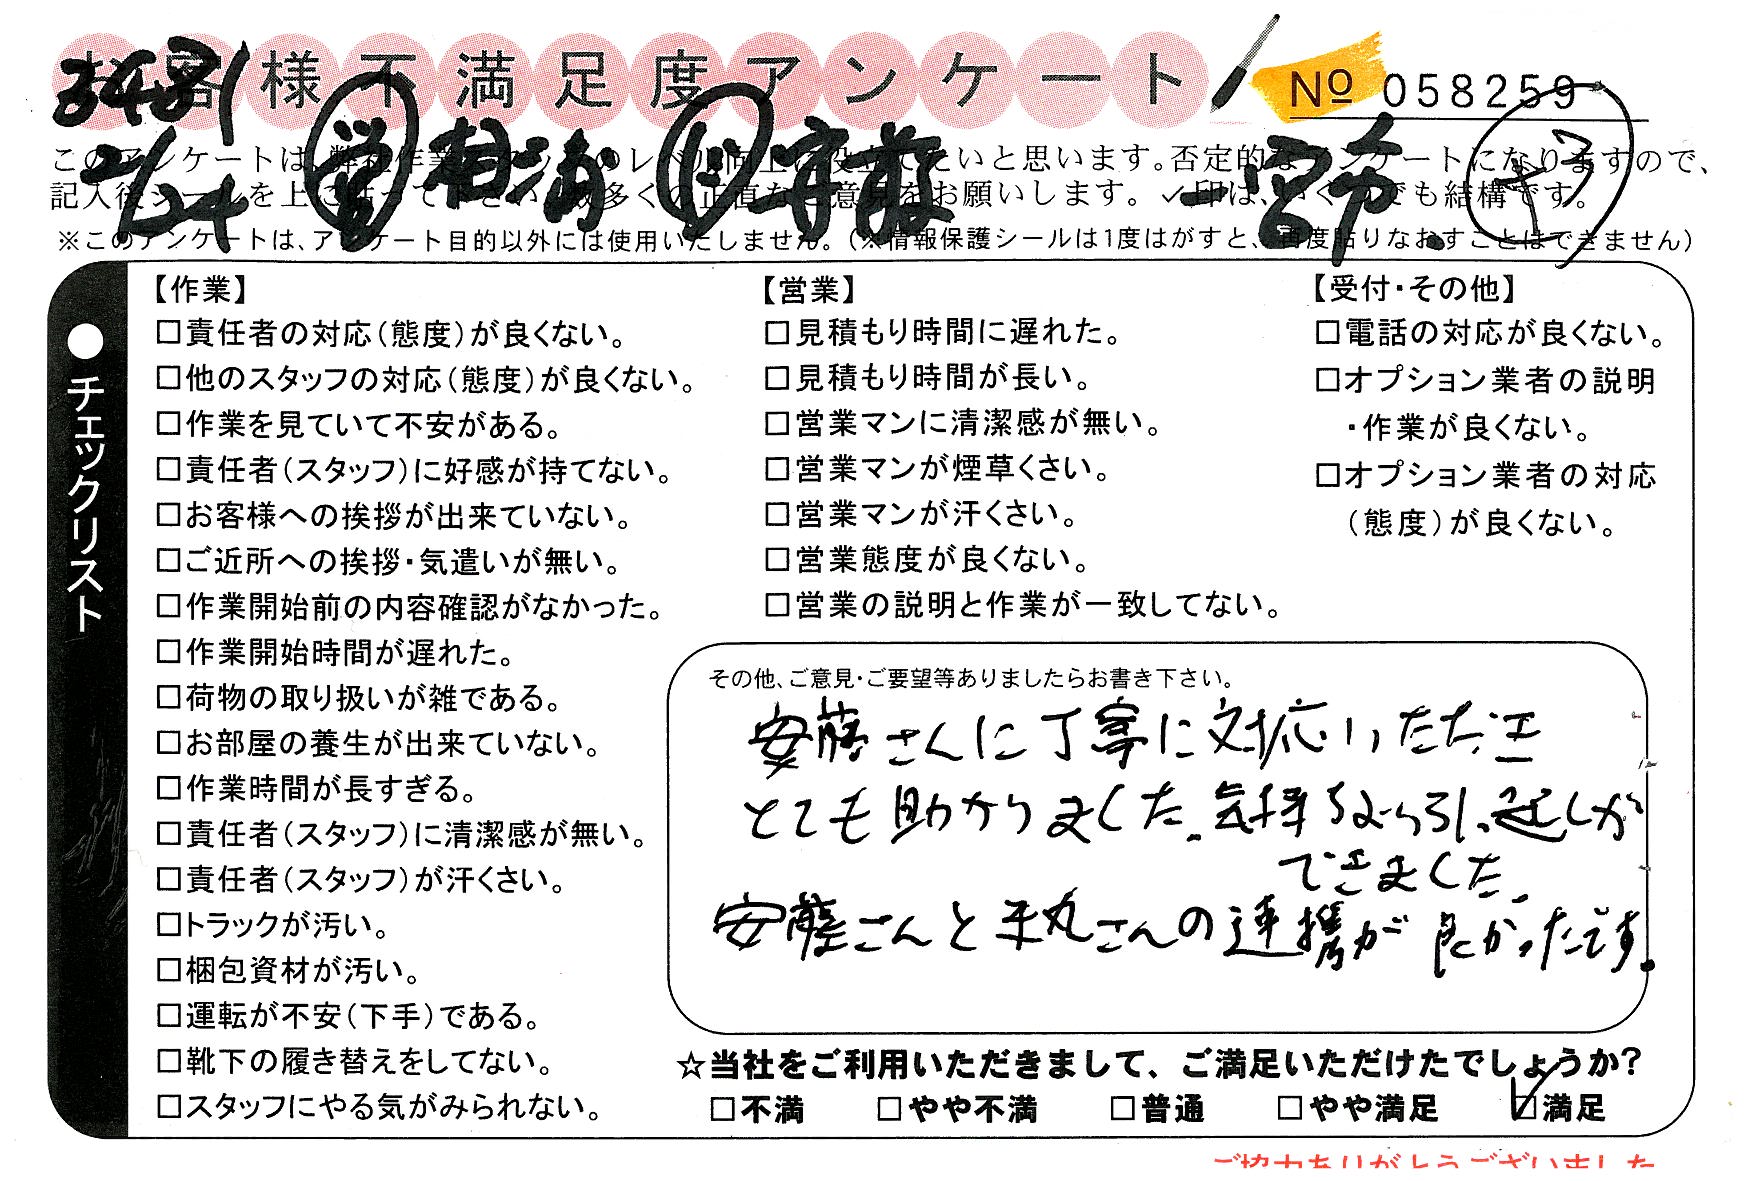 お客様不満足度アンケート
No 058259
3431
2/24 営 相浦 ド 安藤 一宮市
このアンケートは、弊社作業スタッフのレベル向上に役立てたいと思います。否定的なアンケートになりますので、
記入後シールを上に貼って下さい。数多くの正直なご意見をお願いします。✓印は、いくつでも結構です。
※このアンケートは、アンケート目的以外には使用いたしません。(※情報保護シールは1度はがすと、再度貼りなおすことはできません)
●チェックリスト
【作業】
□責任者の対応(態度)が良くない。
□他のスタッフの対応(態度)が良くない。
□作業を見ていて不安がある。
□責任者(スタッフ)に好感が持てない。
□お客様への挨拶が出来ていない。
□ご近所への挨拶・気遣いが無い。
□作業開始前の内容確認がなかった。
□作業開始時間が遅れた。
□荷物の取り扱いが雑である。
□お部屋の養生が出来ていない。
□作業時間が長すぎる。
□責任者(スタッフ)に清潔感が無い。
□責任者(スタッフ)が汗くさい。
□トラックが汚い。
□梱包資材が汚い。
□運転が不安(下手)である。
□靴下の履き替えをしてない。
□スタッフにやる気がみられない。
【営業】
□見積もり時間に遅れた。
□見積もり時間が長い。
□営業マンに清潔感が無い。
□営業マンが煙草くさい。
□営業マンが汗くさい。
□営業態度が良くない。
□営業の説明と作業が一致してない。
【受付・その他】
□電話の対応が良くない。
□オプション業者の説明
・作業が良くない。
□オプション業者の対応
(態度)が良くない。
その他、ご意見・ご要望等ありましたらお書き下さい。
安藤さんに丁寧に対応いただき
とても助かりました。気持ちよく引っ越しが
できました。
安藤さんと禾丸さんの連携が良かったです。
☆当社をご利用いただきまして、ご満足いただけたでしょうか?
□不満 □やや不満 □普通 □やや満足 ☑満足
ご協力ありがとうございました